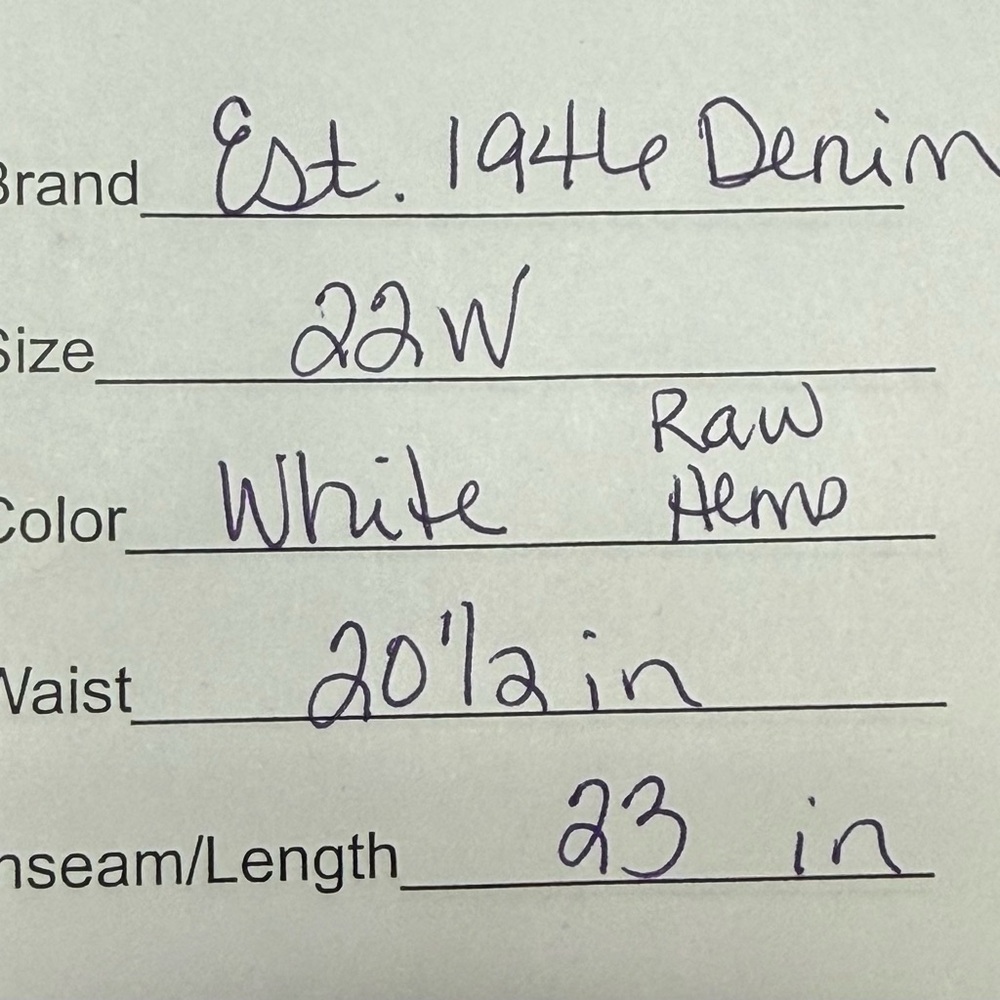 Brand Est. 1946 Denim
Size 22W
Raw
Color White Hems
Waist 20 1/2 in
Inseam/Length 23 in